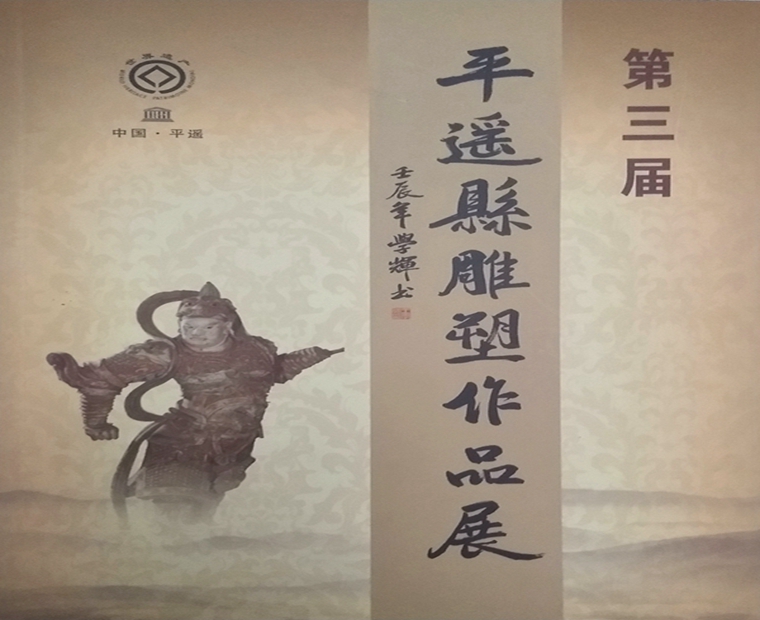 第三届
平遥縣雕塑作品展
壬辰年學輝书
世界遗产
中国·平遥